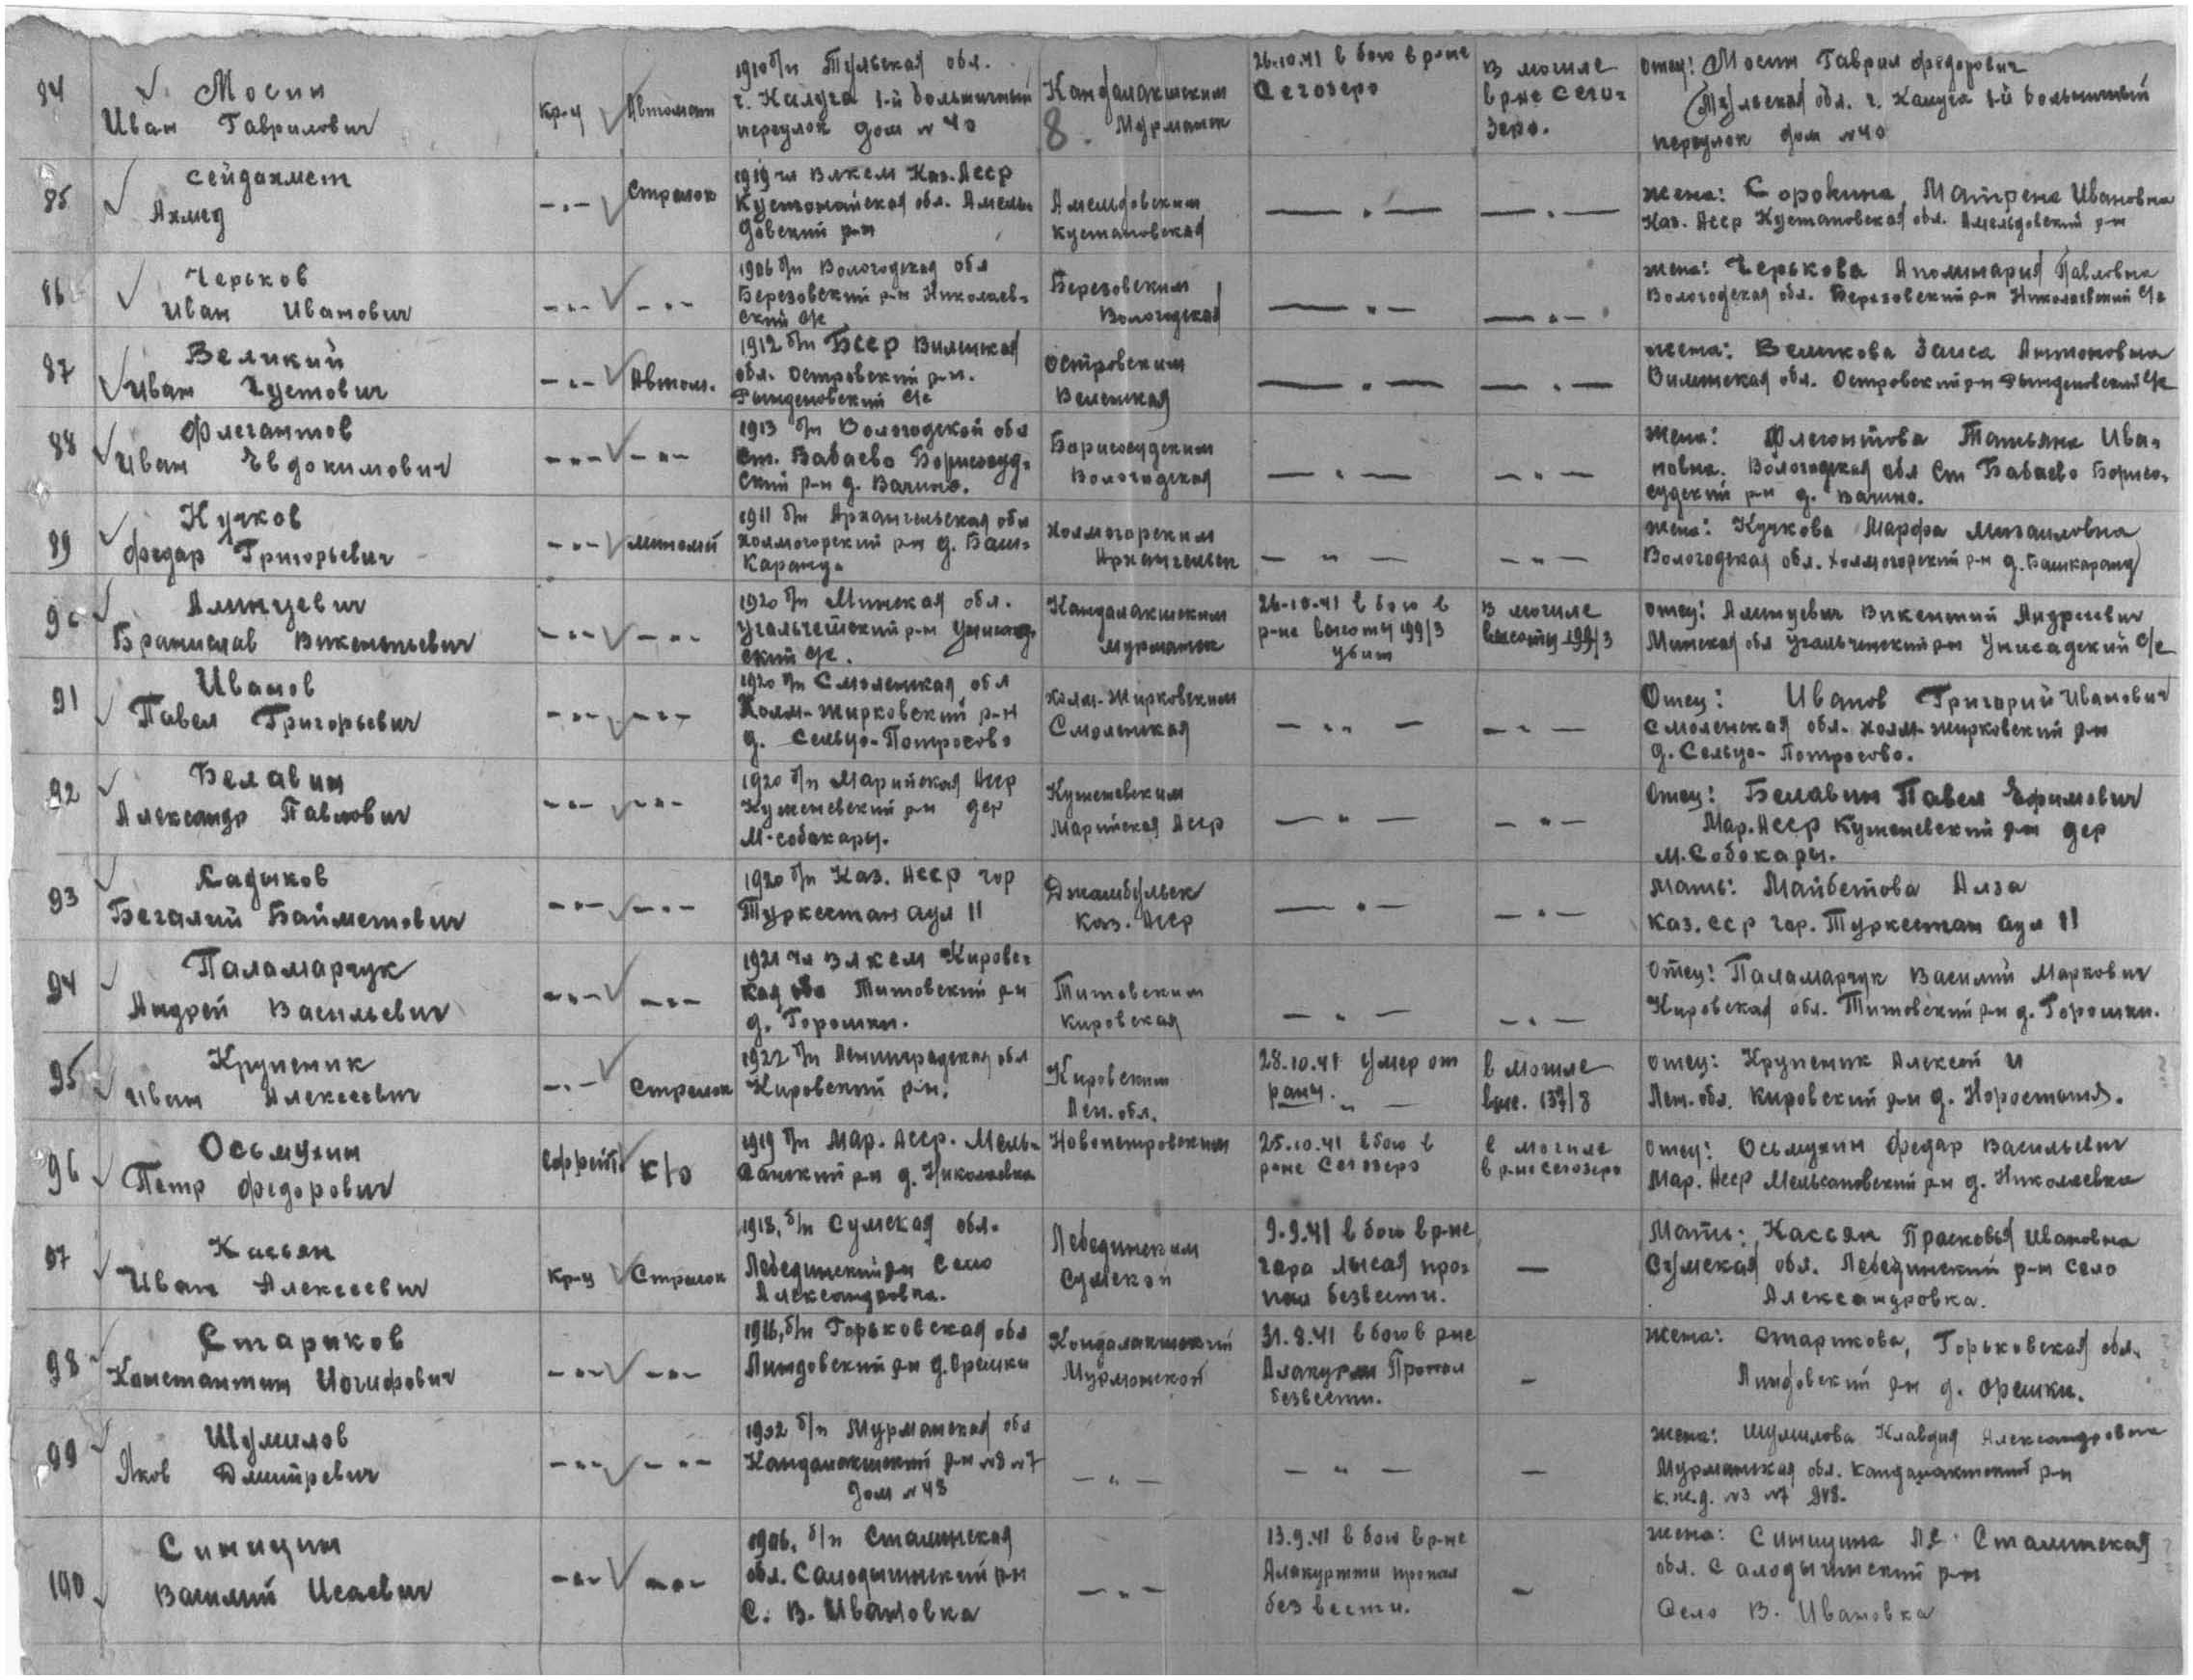 84
Мосин
Иван Гаврилович
кр-ц
Автоматч
1910 б/п Тульская обл.
г. Калуга 1-й больничный
переулок дом № 40
Кандалакшским
8. Мурманск
26.10.41 в бою в р-не
Сегозеро
В могиле
в р-не Сего-
зеро.
отец: Мосин Гаврил Федорович
Тульская обл. г. Калуга 1-й больничный
переулок дом № 40
85
Сейдахмет
Ахмед
—"—
Стрелок
1919 чл ВЛКСМ Каз. АССР
Кустонайская обл. Амель-
довский р-н
Амельдовским
Кустановская
—"—
—"—
жена: Сорокина Матрена Ивановна
Каз. АССР Кустановская обл. Амельдовский р-н
86
Черьков
Иван Иванович
—"—
—"—
1906 б/п Вологодская обл
Березовский р-н Николаев-
ский с/с
Березовским
Вологодская
—"—
—"—
жена: Черькова Аполинария Павловна
Вологодская обл. Березовский р-н Николаевский с/с
87
Великий
Иван Густович
—"—
Автом.
1912 б/п БССР Вилинская
обл. Островский р-н.
Рындиновский с/с
Островским
Веленская
—"—
—"—
жена: Великова Заиса Антоновна
Виленская обл. Островский р-н Рындиновский с/с
88
Флегантов
Иван Евдокимович
—"—
—"—
1913 б/п Вологодской обл
ст. Бабаево Борисосуд-
ский р-н д. Вагино.
Борисосудским
Вологодская
—"—
—"—
жена: Флегонтова Татьяна Ива-
новна. Вологодская обл ст Бабаево Борисо-
судский р-н д. Вагино.
89
Кучков
Федар Григорьевич
—"—
миномет
1911 б/п Архангельская обл
Холмогорский р-н д. Баш-
каранд.
Холмогорским
Архангельск
—"—
—"—
жена: Кучкова Марфа Михаиловна
Вологодская обл. Холмогорский р-н д. Башкаранд
90
Алинцевич
Бранислав Викентьевич
—"—
—"—
1920 б/п Минская обл.
ский с/с.
Кандалакшским
Мурманск
26-10-41 в бою в
р-не высоты 199/3
убит
В могиле
высоты 199/3
отец: Алинцевич Викентий Андреевич
Минская обл Угальченский р-н Унисадский с/с
91
Иванов
Павел Григорьевич
—"—
—"—
1920 б/п Смоленская обл
Холм-Жирковский р-н
д. Сельцо-Потросово
Холм-Жирковским
Смоленская
—"—
—"—
Отец: Иванов Григорий Иванович
Смоленская обл. Холм-Жирковский р-н
д. Сельцо-Потросово.
92
Белавин
Александр Павлович
—"—
—"—
1920 б/п Марийская АССР
Куженевский р-н дер
М-собакары.
Куженевским
Марийская АССР
—"—
—"—
Отец: Белавин Павел Ефимович
Мар. АССР Куженевский р-н дер
М. Собокары.
93
Садыков
Бегалий Байметович
—"—
—"—
1920 б/п Каз. АССР гор
Туркестан аул 11
Джамбульск
Каз. АССР
—"—
—"—
мать: Майбетова Алза
Каз. ССР гор. Туркестан аул 11
94
Паламарчук
Андрей Васильевич
—"—
—"—
1921 чл ВЛКСМ Кировс-
кая обл Титовский р-н
д. Горошки.
Титовским
Кировская
—"—
—"—
Отец: Паламарчук Василий Маркович
Кировская обл. Титовский р-н д. Горошки.
95
Крупеник
Иван Алексеевич
—"—
Стрелок
1922 б/п Ленинградская обл
Кировский р-н.
Кировским
Лен. обл.
28.10.41 умер от
ран.
"—
в могиле
выс. 137/8
отец: Крупеник Алексей И
Лен. обл. Кировский р-н д.
96
Осьмухин
Петр Федорович
Ефрейт.
к/о
1919 б/п Мар. АССР. Мель-
санский р-н д. Николаевка
Новопетровским
25.10.41 в бою в
р-не Сегозеро
в могиле
в р-не Сегозеро
отец: Осьмухин Федар Васильевич
Мар. АССР Мельсановский р-н д. Николаевка
97
Кассьян
Иван Алексеевич
кр-ц
Стрелок
1918, б/п Сумская обл.
Лебединский р-н Село
Александровка.
Лебединским
Сумской
9.9.41 в бою в р-не
гора лысая про-
пал безвести.
—
Мать: Кассьян Прасковья Ивановна
Сумская обл. Лебединский р-н село
Александровка.
98
Стариков
Константин Иосифович
—"—
—"—
1916, б/п Горьковская обл
Линдовский р-н д. Орешки
Кондалакшский
Мурманской
31.8.41 в бою в р-не
Алакурти Пропал
безвести.
—
жена: Старикова, Горьковская обл.
Линдовский р-н д. Орешки.
99
Шумилов
Яков Дмитревич
—"—
—"—
1902 б/п Мурманская обл
Кандалакшский р-н №8 №7
дом № 48
—"—
—"—
—
жена: Шумилова Клавдия Александровна
Мурманская обл. Кандалакшский р-н
к.ж.д. №3 №7
100
Синицин
Василий Исаевич
—"—
—"—
1906, б/п Сталинская
обл. Солодышинский р-н
С. В. Ивановка
—"—
13.9.41 в бою в р-не
Алакуртти пропал
без вести.
—
жена: Синицина Л.С. Сталинская
обл. Салодышинский р-н
Село В. Ивановка